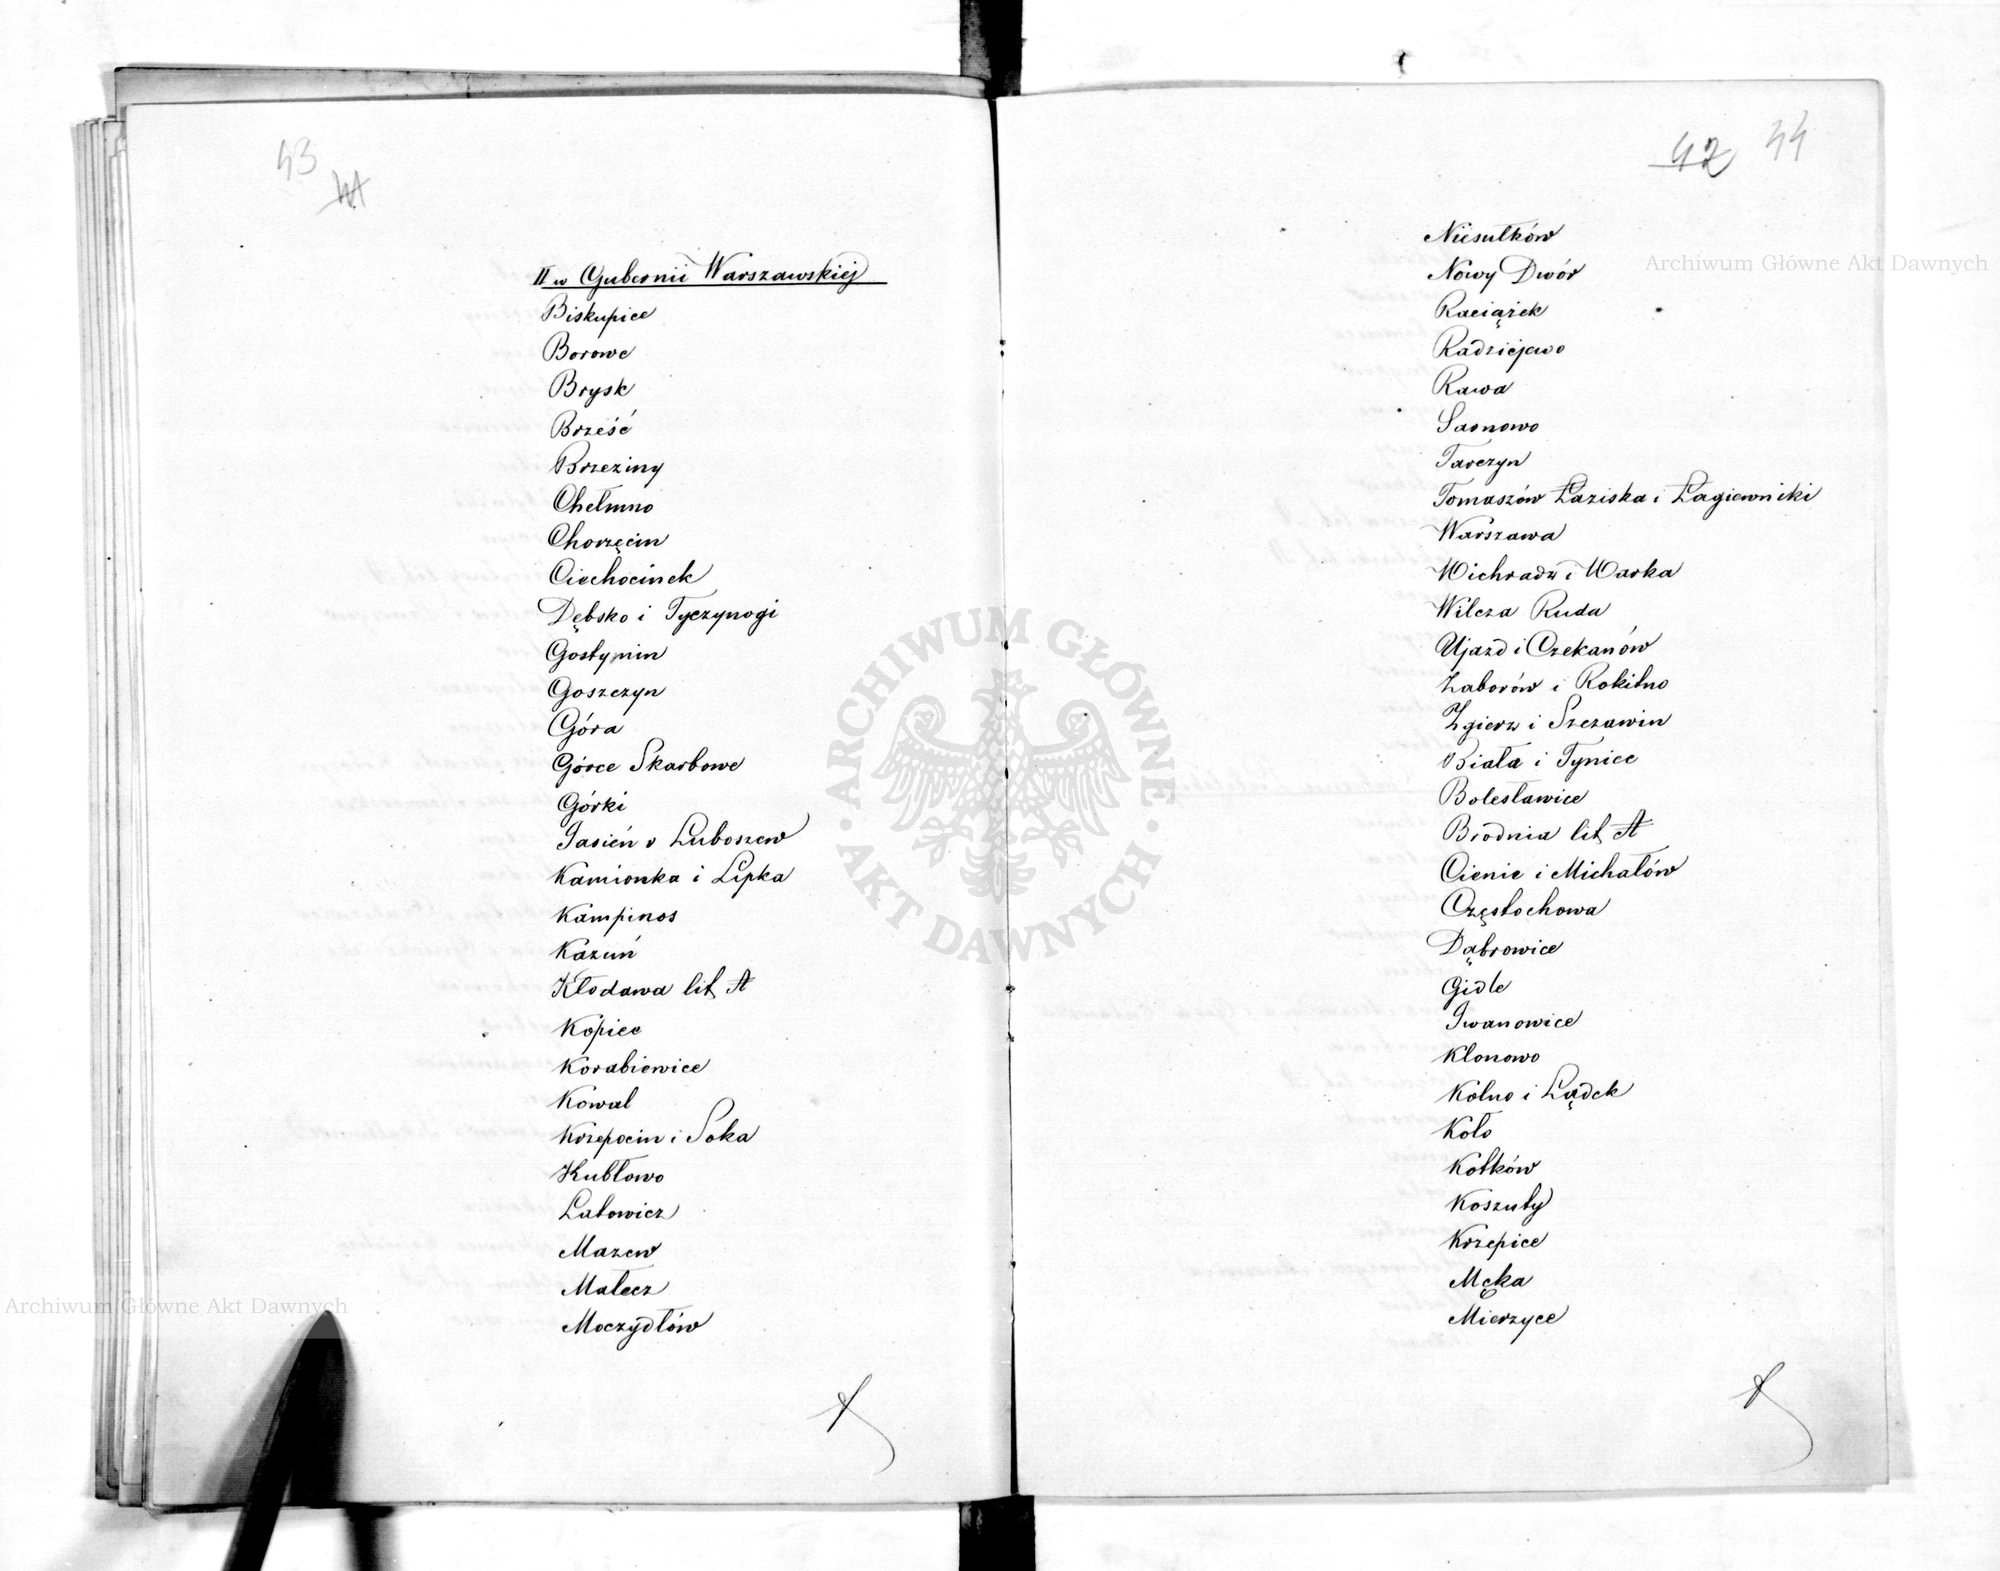 43
II w Gubernii Warszawskiéj
Biskupice
Borowe
Brysk
Brześć
Brzeziny
Chełmno
Chorzęcin
Ciechocinek
Dębsko i Tyczynogi
Gostynin
Goszczyn
Góra
Górce Skarbowe
Górki
Jasień v Luboszew
Kamionka i Lipka
Kampinos
Kazuń
Kłodawa lit A
Kopiec
Korabiewice
Kowal
Krzepocin i Soka
Kubłowo
Latowicz
Mazew
Małecz
Moczydłów
42 44
Niesułków
Nowy Dwór
Raciążek
Radziejewo
Rawa
Sarnowo
Tarczyn
Tomaszów Łaziska i Łagiewniki
Warszawa
Michradz i Warka
Wilcza Ruda
Ujazd i Czekanów
Zaborów i Rokitno
Zgierz i Szczawin
Biała i Tyniec
Bolesławice
Brodnia lit A
Cienie i Michałów
Częstochowa
Dąbrowice
Gidle
Iwanowice
Klonowo
Kolno i Lądek
Koło
Kotków
Koszuty
Krzepice
Męka
Mierzyce
Archiwum Główne Akt Dawnych
Archiwum Główne Akt Dawnych
ARCHIWUM GŁÓWNE
AKT DAWNYCH